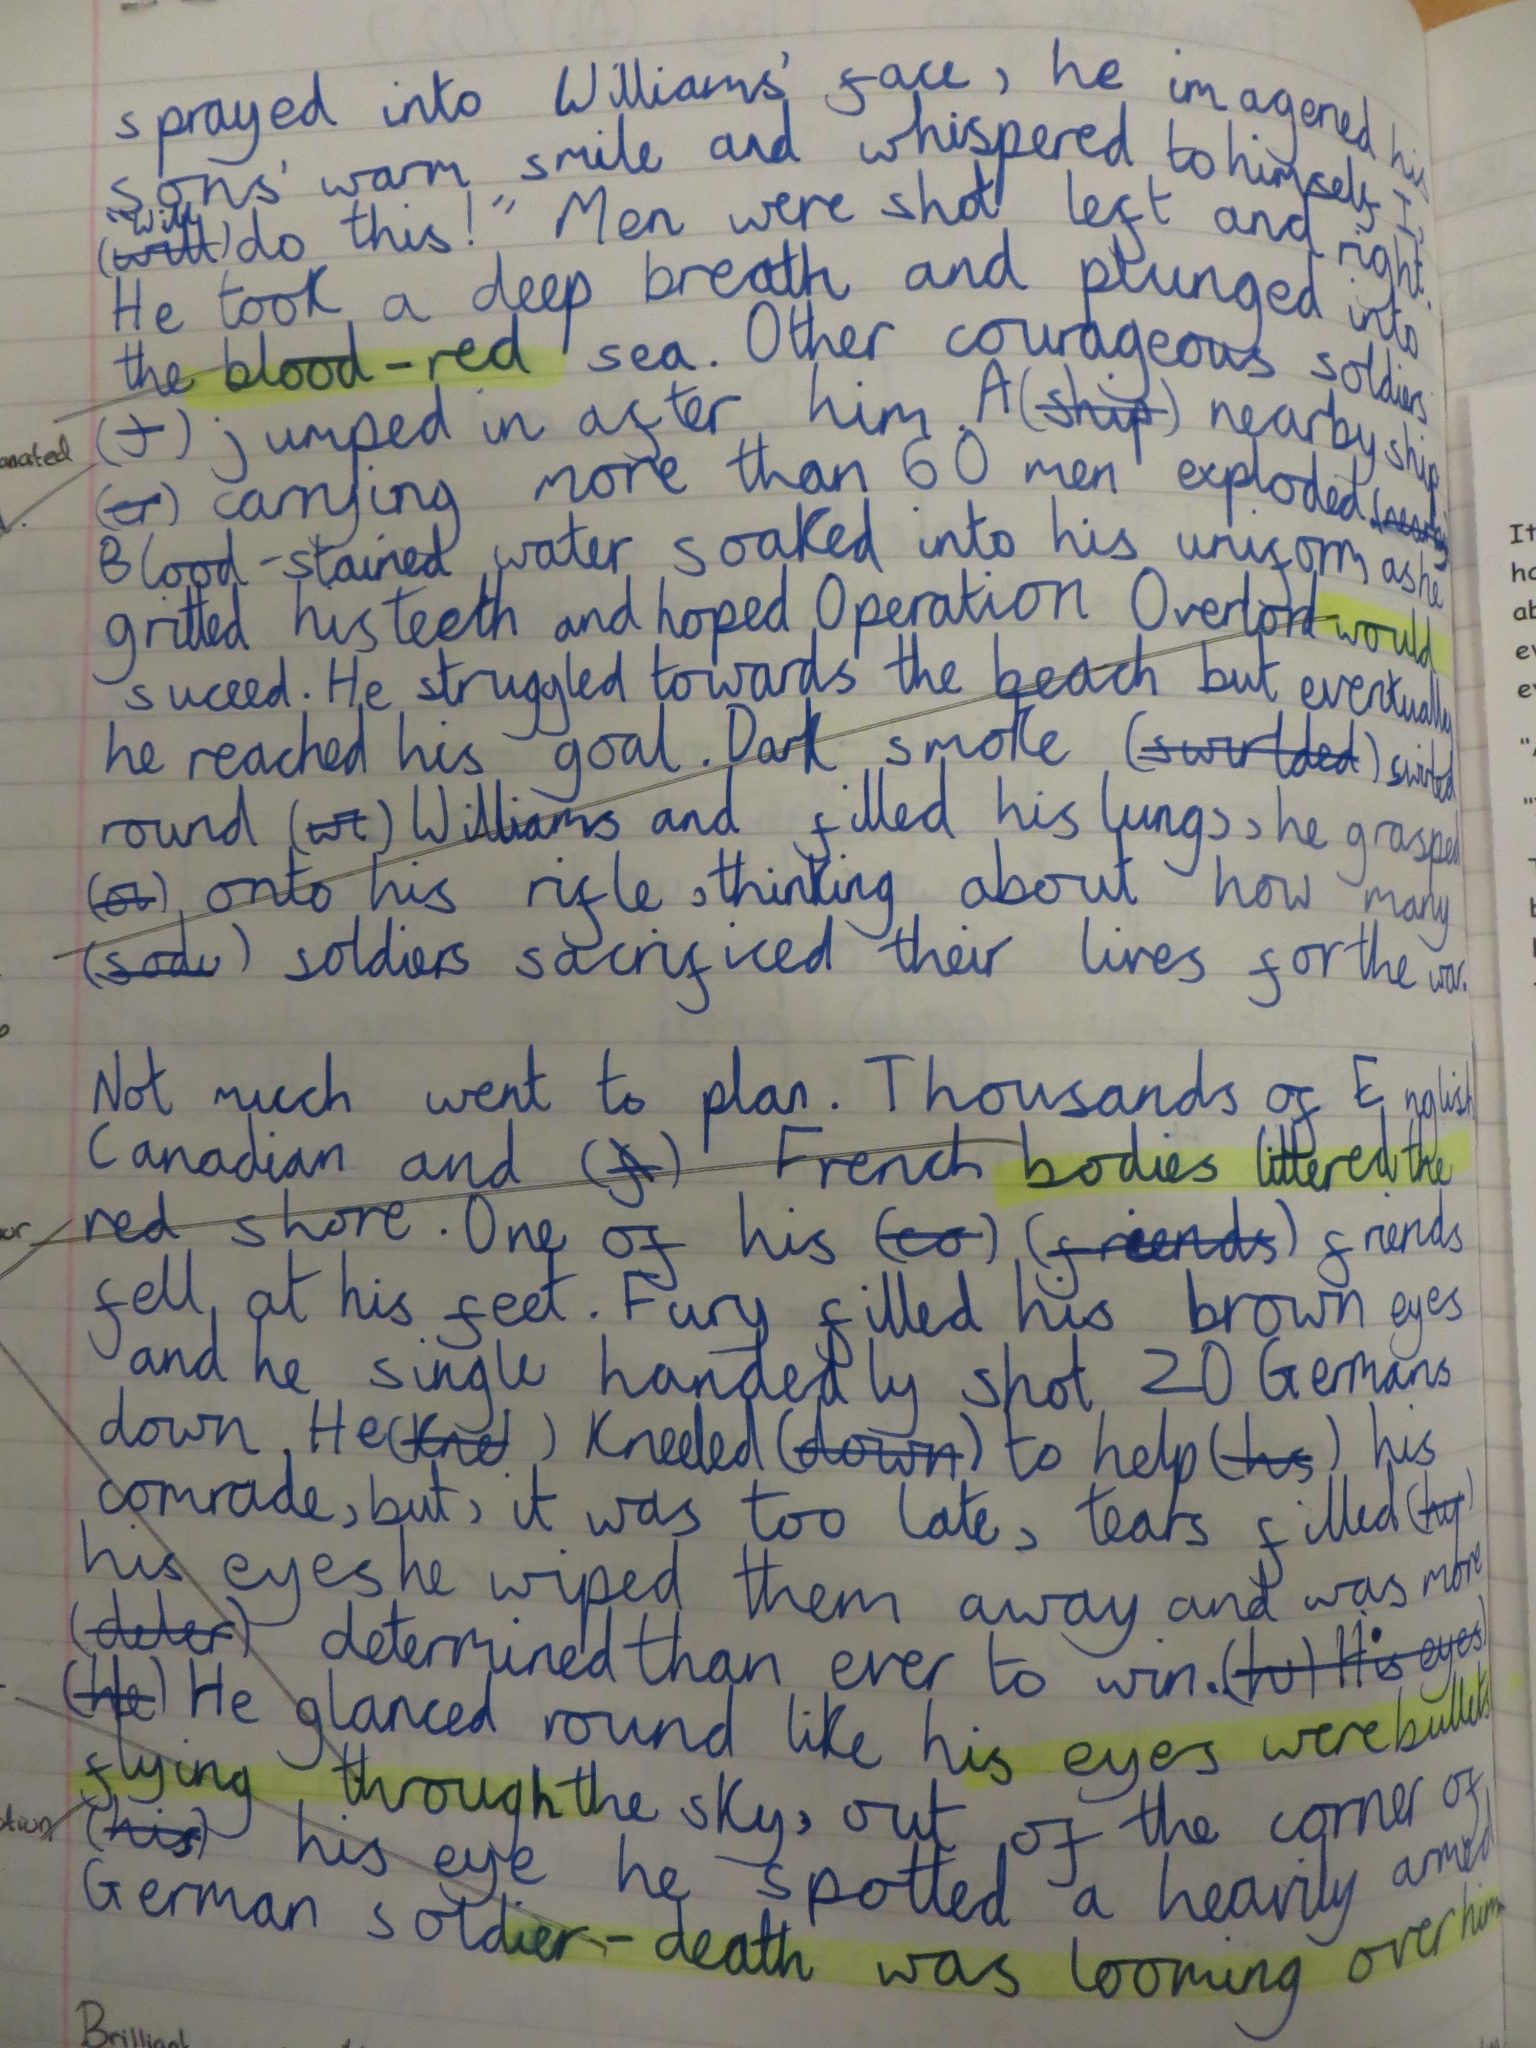 sprayed into Williams' face, he imagened his
sons' warm smile and whispered to himself, I,
"will (will) do this!" Men were shot left and right.
He took a deep breath and plunged into
the blood-red sea. Other courageous soldiers
(J) jumped in after him. A (ship) nearby ship
(cr) carrying more than 60 men exploded. (nearby)
Blood-stained water soaked into his uniform as he
gritted his teeth and hoped Operation Overlord would
suceed. He struggled towards the beach but eventually
he reached his goal. Dark smoke (swirlded) swirled
round (wt) Williams and filled his lungs, he grasped
(ot) onto his rifle, thinking about how many
(sode) soldiers sacrificed their lives for the war.
Not much went to plan. Thousands of English
Canadian and (f) French bodies littered the
red shore. One of his (co) (friends) friends
fell at his feet. Fury filled his brown eyes
and he single handedly shot 20 Germans
down. He (kne) kneeled (down) to help (hs) his
comrade, but, it was too late, tears filled (hy)
his eyes he wiped them away and was more
(deter) determined than ever to win. (hi) His eyes)
(He) He glanced round like his eyes were bullets
flying through the sky, out of the corner of
(his) his eye he spotted a heavily armed
German soldier - death was looming over him
Brilliant